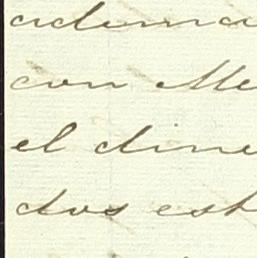 adema
con Me
el dine
dos est